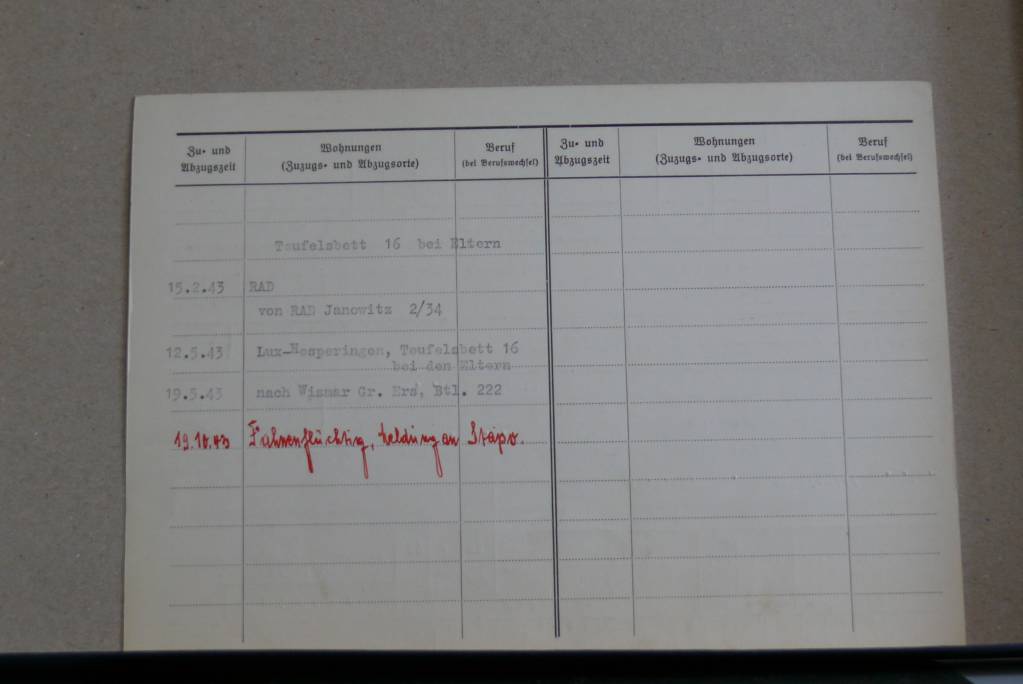 Zu- und Abzugszeit
Wohnungen
(Zuzugs- und Abzugsorte)
Beruf
(bei Berufswechsel)
Zu- und Abzugszeit
Wohnungen
(Zuzugs- und Abzugsorte)
Beruf
(bei Berufswechsel)
Teufelsbett 16 bei Eltern
15.2.43 RAD
von RAD Janowitz 2/34
12.5.43 Lux-Hesperingen, Teufelsbett 16
bei den Eltern
19.5.43 nach Wismar Gr. Ers, Btl. 222
19.10.43 Fahnenflüchtig, Meldung an Stapo.